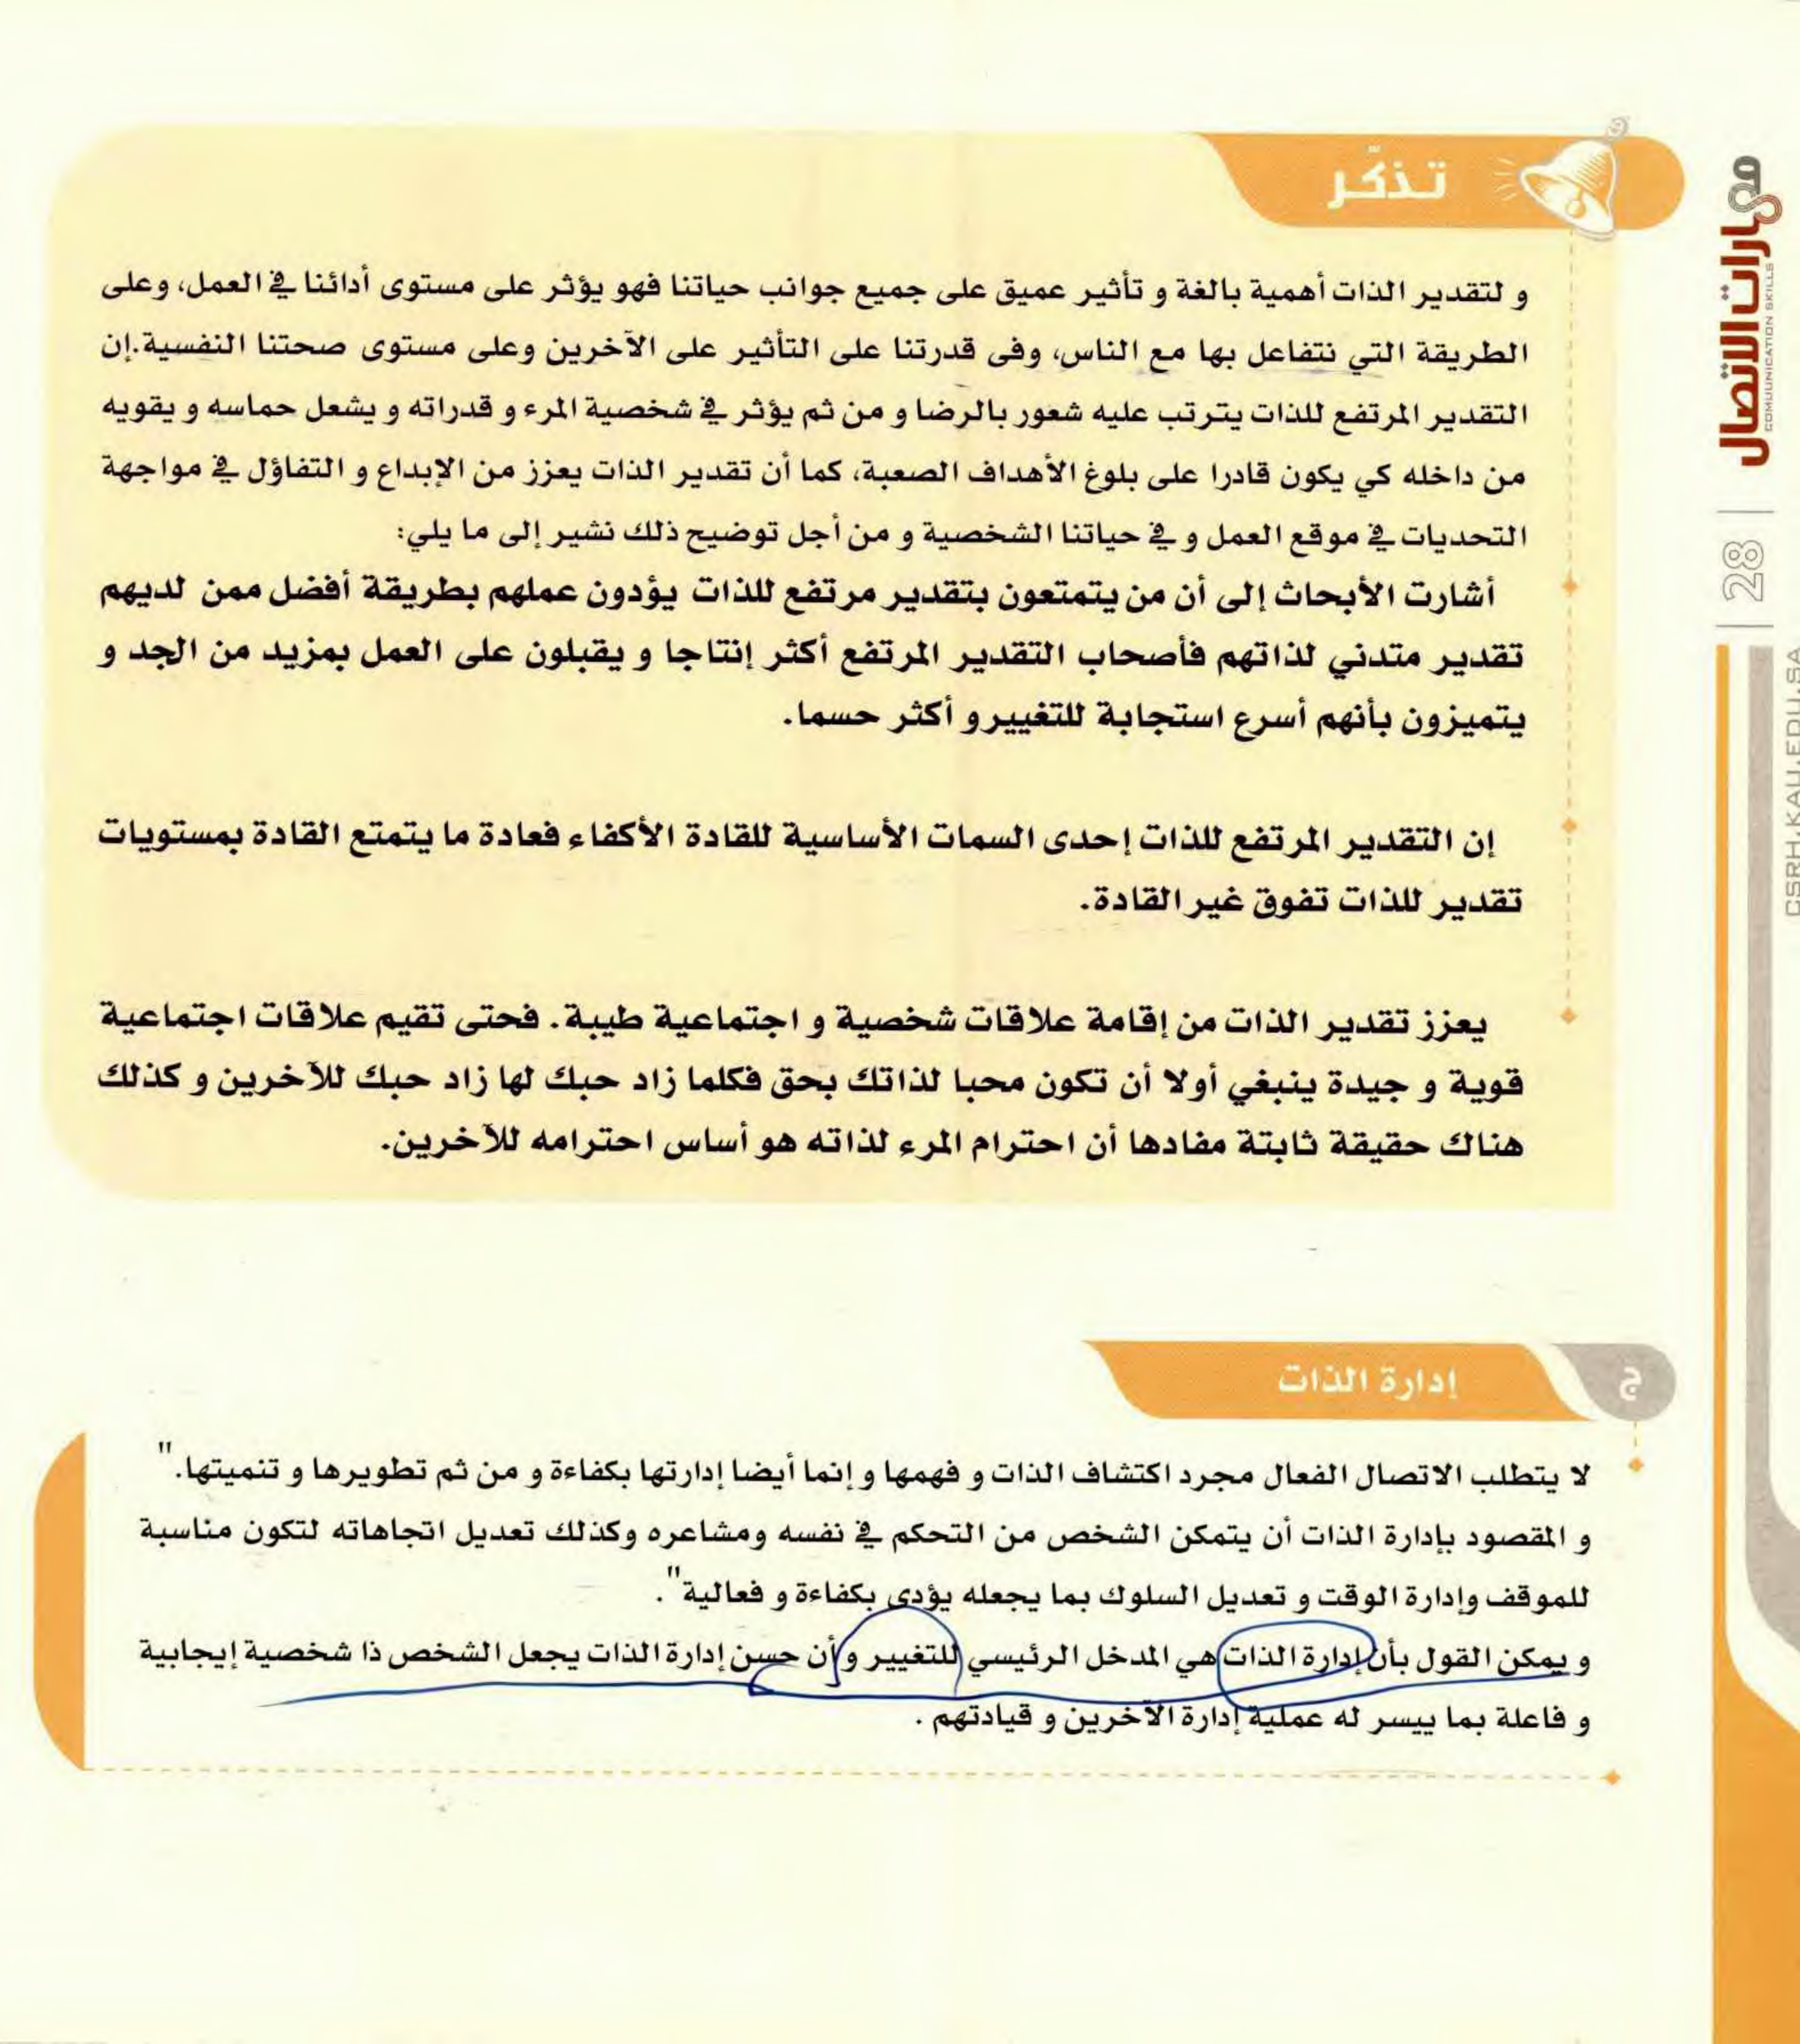 تذكّر
و لتقدير الذات أهمية بالغة و تأثير عميق على جميع جوانب حياتنا فهو يؤثر على مستوى أدائنا في العمل، وعلى
الطريقة التي نتفاعل بها مع الناس، وفى قدرتنا على التأثير على الآخرين وعلى مستوى صحتنا النفسية.إن
التقدير المرتفع للذات يترتب عليه شعور بالرضا و من ثم يؤثر في شخصية المرء و قدراته و يشعل حماسه و يقويه
من داخله كي يكون قادرا على بلوغ الأهداف الصعبة، كما أن تقدير الذات يعزز من الإبداع و التفاؤل في مواجهة
التحديات في موقع العمل و في حياتنا الشخصية و من أجل توضيح ذلك نشير إلى ما يلي:
أشارت الأبحاث إلى أن من يتمتعون بتقدير مرتفع للذات يؤدون عملهم بطريقة أفضل ممن لديهم
تقدير متدني لذاتهم فأصحاب التقدير المرتفع أكثر إنتاجا و يقبلون على العمل بمزيد من الجد و
يتميزون بأنهم أسرع استجابة للتغيير و أكثر حسما.
إن التقدير المرتفع للذات إحدى السمات الأساسية للقادة الأكفاء فعادة ما يتمتع القادة بمستويات
تقدير للذات تفوق غير القادة.
يعزز تقدير الذات من إقامة علاقات شخصية و اجتماعية طيبة. فحتى تقيم علاقات اجتماعية
قوية و جيدة ينبغي أولا أن تكون محبا لذاتك بحق فكلما زاد حبك لها زاد حبك للآخرين و كذلك
هناك حقيقة ثابتة مفادها أن احترام المرء لذاته هو أساس احترامه للآخرين.
ج
إدارة الذات
لا يتطلب الاتصال الفعال مجرد اكتشاف الذات و فهمها و إنما أيضا إدارتها بكفاءة و من ثم تطويرها و تنميتها."
و المقصود بإدارة الذات أن يتمكن الشخص من التحكم في نفسه ومشاعره وكذلك تعديل اتجاهاته لتكون مناسبة
للموقف وإدارة الوقت و تعديل السلوك بما يجعله يؤدى بكفاءة و فعالية".
و يمكن القول بأن إدارة الذات هي المدخل الرئيسي للتغيير و أن حسن إدارة الذات يجعل الشخص ذا شخصية إيجابية
و فاعلة بما ييسر له عملية إدارة الآخرين و قيادتهم .
مهارات الاتصال
COMUUNICATION SKILLS
28
CSRH.KAU.EDU.SA